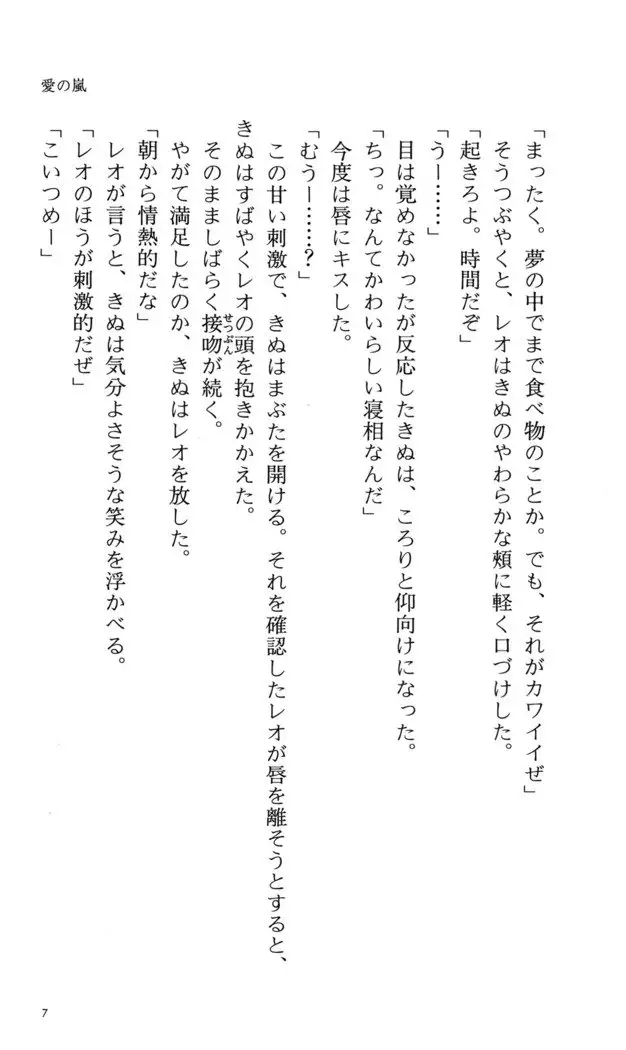 愛の嵐
「まったく。夢の中でまで食べ物のことか。でも、それがカワイイぜ」
そうつぶやくと、レオはきぬのやわらかな頰に軽く口づけした。
「起きろよ。時間だぞ」
「うー……」
目は覚めなかったが反応したきぬは、ころりと仰向けになった。
「ちっ。なんてかわいらしい寝相なんだ」
今度は唇にキスした。
「むうー……？」
この甘い刺激で、きぬはまぶたを開ける。それを確認したレオが唇を離そうとすると、
きぬはすばやくレオの頭を抱きかかえた。
そのまましばらく接吻が続く。
せっぷん
やがて満足したのか、きぬはレオを放した。
「朝から情熱的だな」
レオが言うと、きぬは気分よさそうな笑みを浮かべる。
「レオのほうが刺激的だぜ」
「こいつめー」
7